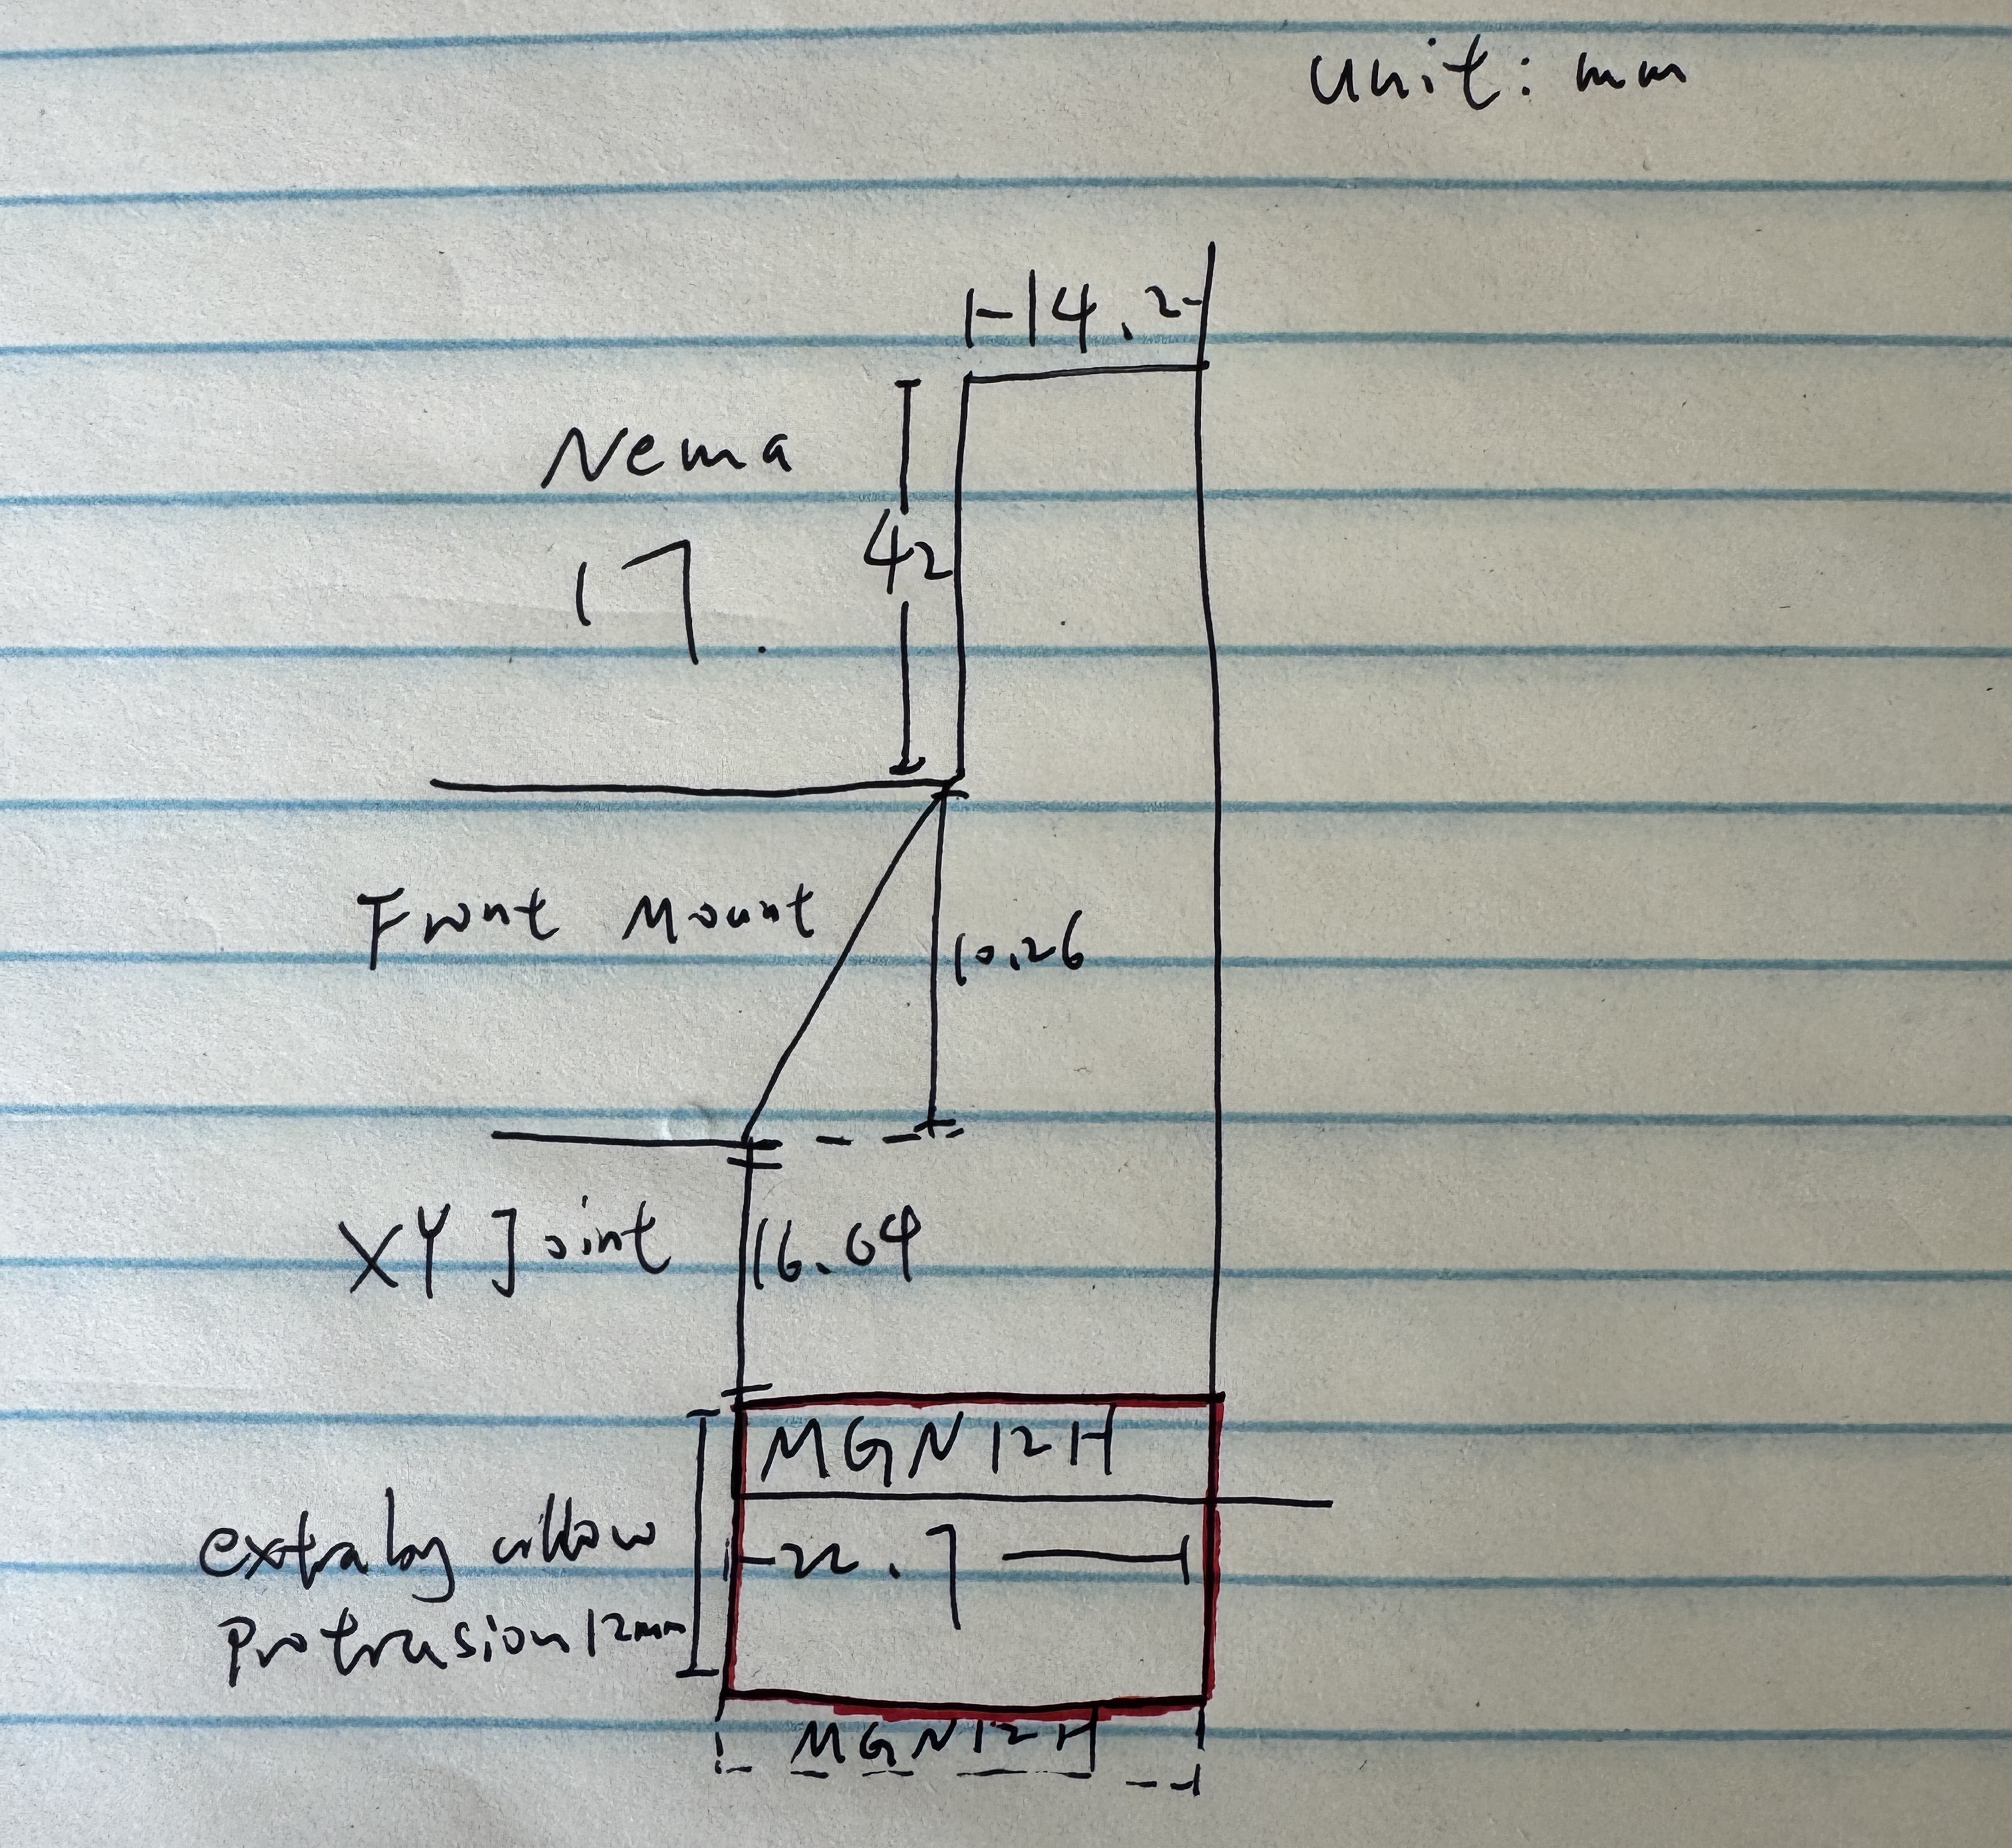 unit: mm
14.2
Nema
42
17
Front Mount
10.26
XY Joint
16.04
MGN12H
extra by allow
22.7
Protrusion 12mm
MGN12H